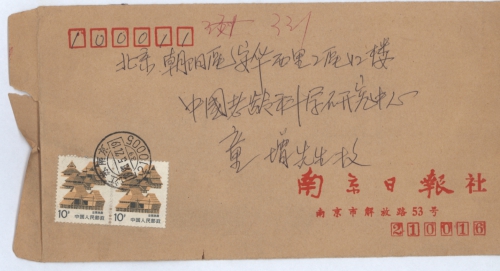 100011
北京朝阳区安华西里2区12楼
中国老龄科学研究中心
童增先生收
10分
中国人民邮政
10分
中国人民邮政
南京日报社
南京市解放路53号
210016